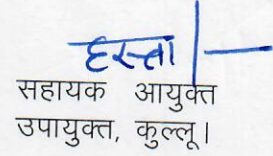 हस्ता/-
सहायक आयुक्त
उपायुक्त, कुल्लू।